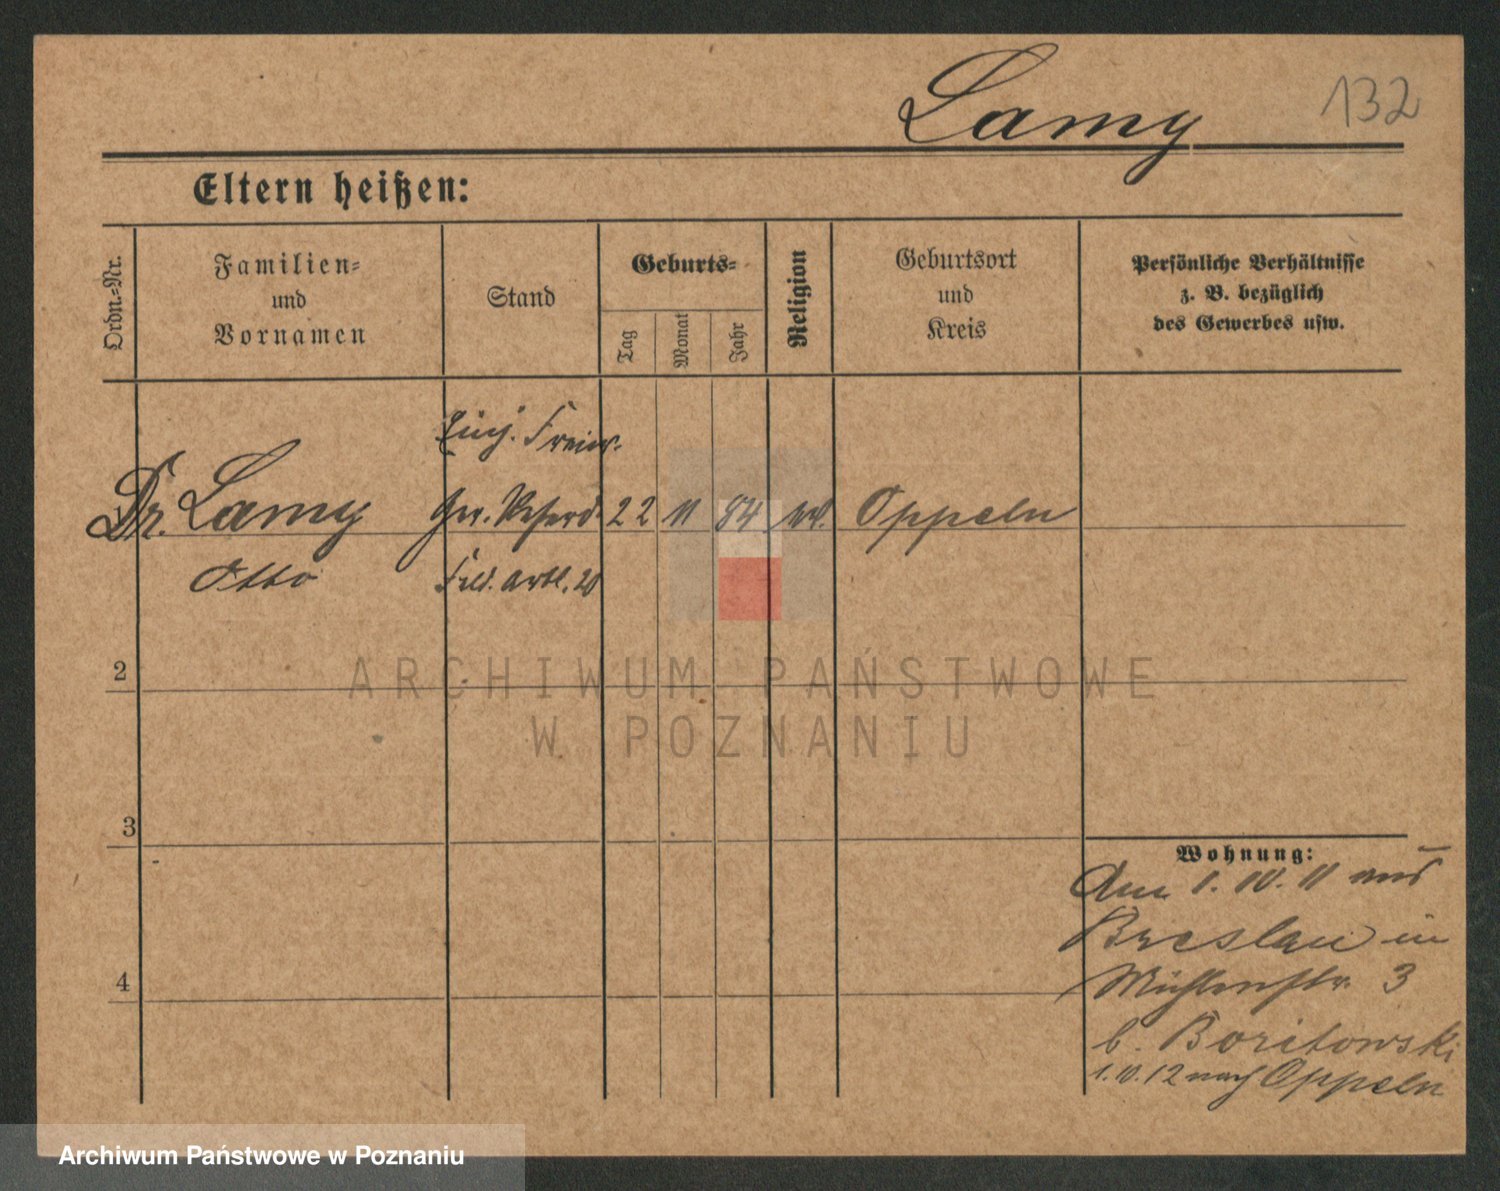 Lamy
132
Eltern heißen:
Ordn.-Nr.
Familien-
und
Vornamen
Stand
Geburts-
Tag
Monat
Jahr
Religion
Geburtsort
und
Kreis
Persönliche Verhältnisse
z. B. bezüglich
des Gewerbes usw.
Einj. Freiw.
Dr. Lamy
Ger. Referd.
22
11
84
Oppeln
Otto
Feld. Artl. 20
2
3
4
Wohnung:
Am 1. 10. 11 aus
Breslau in
Mühlenstr. 3
b. Boritowski
1. 10. 12 nach Oppeln
ARCHIWUM PAŃSTWOWE
W POZNANIU
Archiwum Państwowe w Poznaniu